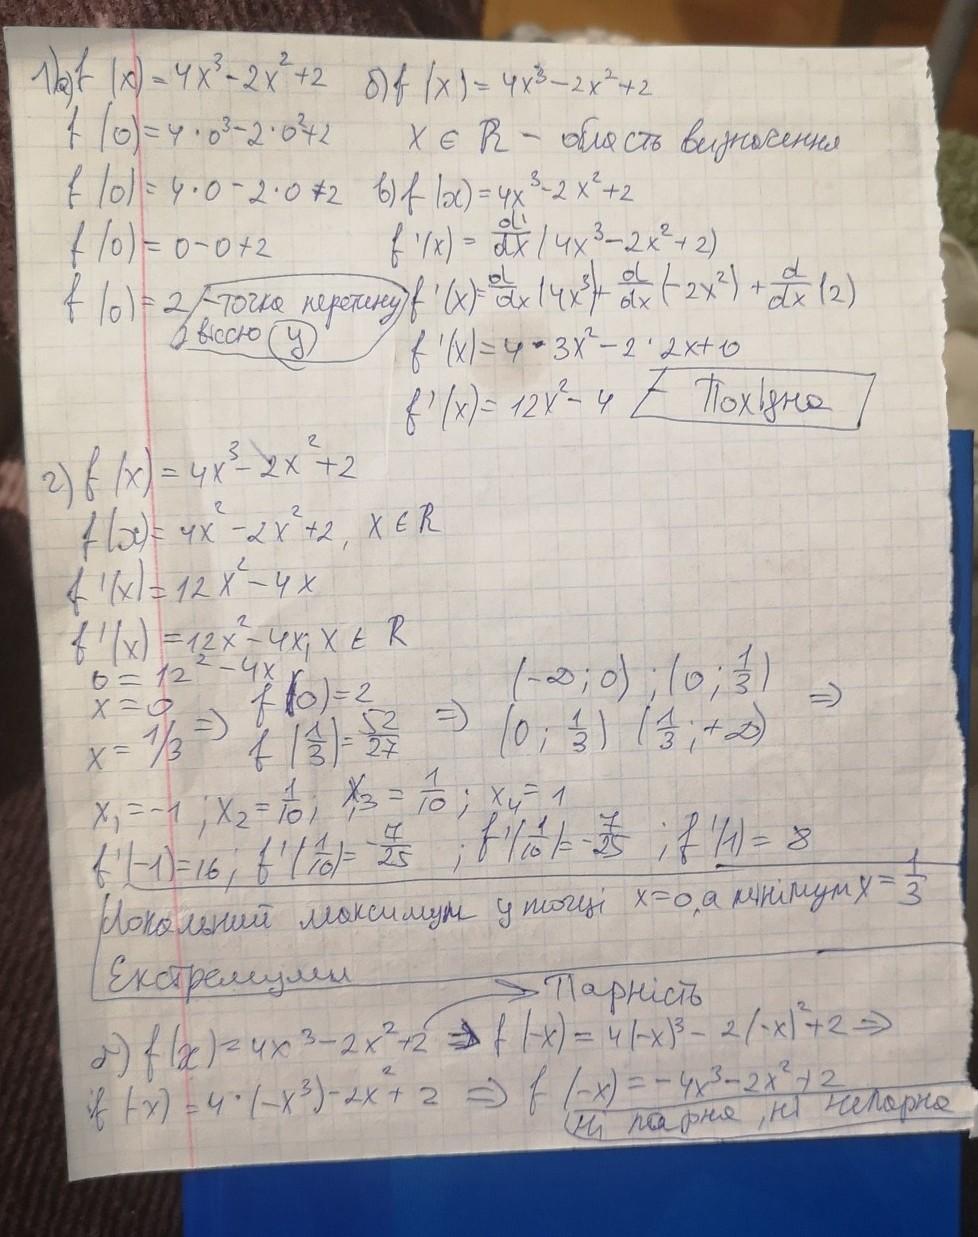 1)а) f(x) = 4x³ - 2x² + 2
f(0) = 4·0³ - 2·0² + 2
f(0) = 4·0 - 2·0 + 2
f(0) = 0 - 0 + 2
f(0) = 2 - точка перетину
з віссю у
б) f(x) = 4x³ - 2x² + 2
x ∈ R - область визначення
в) f(x) = 4x³ - 2x² + 2
f'(x) = d/dx (4x³ - 2x² + 2)
f'(x) = d/dx (4x³) + d/dx (-2x²) + d/dx (2)
f'(x) = 4·3x² - 2·2x + 0
f'(x) = 12x² - 4 - Похідна
г) f(x) = 4x³ - 2x² + 2
f(x) = 4x² - 2x² + 2, x ∈ R
f'(x) = 12x² - 4x
f'(x) = 12x² - 4x, x ∈ R
0 = 12² - 4x
x = 0
x = 1/3 ⇒
f(0) = 2
f(1/3) = 52/27 ⇒
(-∞; 0) ; (0; 1/3)
(0; 1/3) (1/3; +∞) ⇒
x₁ = -1 ; x₂ = 1/10 ; x₃ = 1/10 ; x₄ = 1
f'(-1) = 16 ; f'(1/10) = -7/25 ; f'(1/10) = -7/25 ; f'(1) = 8
Локальний максимум у точці x = 0, а мінімум x = 1/3
Екстремуми
Парність
f(x) = 4x³ - 2x² + 2 ⇒ f(-x) = 4(-x)³ - 2(-x)² + 2 ⇒
f(-x) = 4·(-x³) - 2x² + 2 ⇒ f(-x) = -4x³ - 2x² + 2
Ні парна, ні непарна